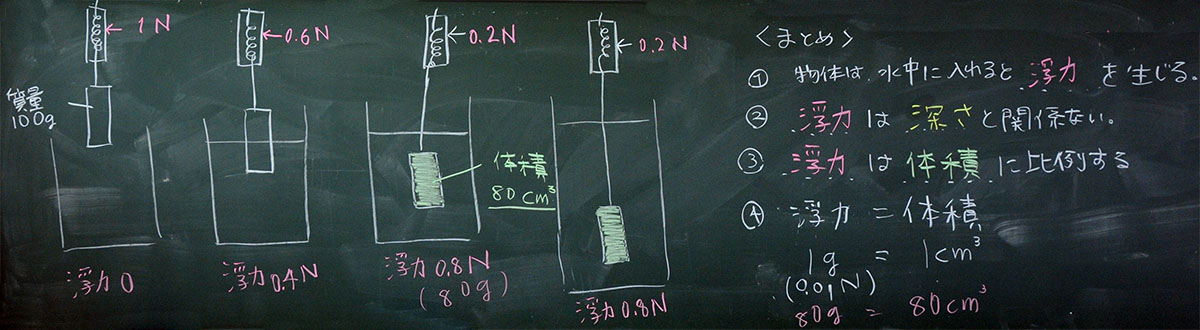 1N
質量
100g
浮力0
0.6N
浮力0.4N
0.2N
体積
80cm³
浮力0.8N
(80g)
0.2N
浮力0.8N
<まとめ>
① 物体は、水中に入れると浮力を生じる。
② 浮力は深さと関係ない。
③ 浮力は体積に比例する
④ 浮力=体積
1g = 1cm³
(0.01N)
80g = 80cm³